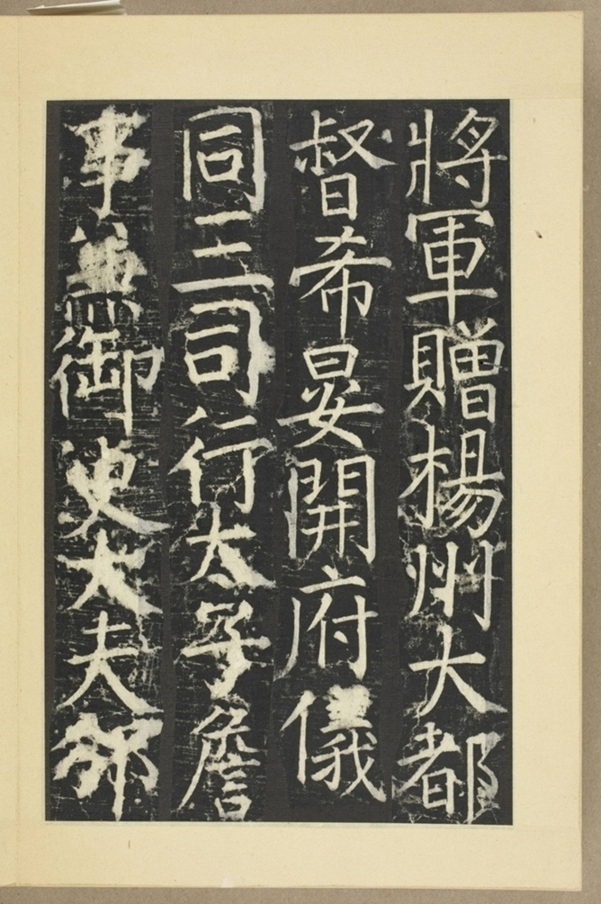 將軍贈楊州大都
督希晏開府儀
同三司行太子詹
事兼御史大夫邠